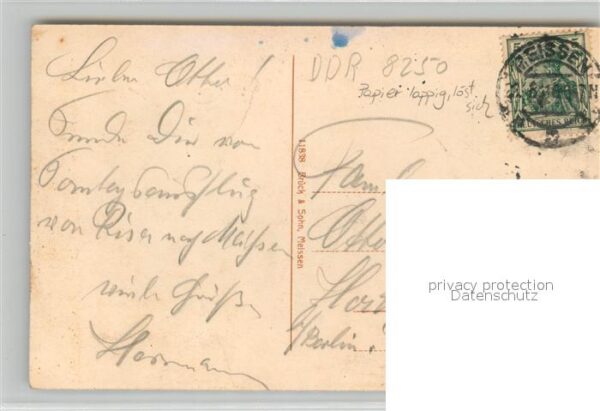 Lieber Otto!
Sende Dir vom
Sonntagsausflug
von Riesa nach Meißen
viele Grüße
Hermann
DDR 8250
Papier lappig, löst
sich
11838 Brück & Sohn, Meissen
Fam
Otto
Berlin
MEISSEN
DEUTSCHES REICH
privacy protection
Datenschutz